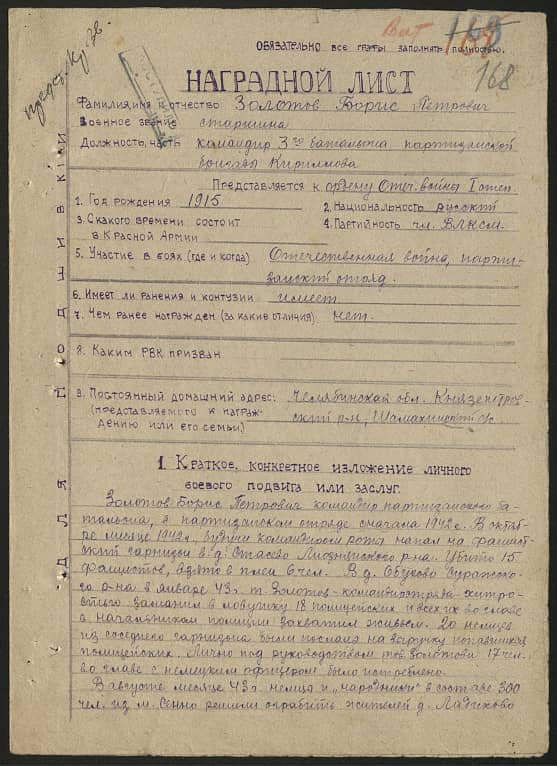 168
ОБЯЗАТЕЛЬНО ВСЕ ГРАФЫ ЗАПОЛНЯТЬ ПОЛНОСТЬЮ.
168
НАГРАДНОЙ ЛИСТ
Фамилия, имя и отчество Золотов Борис Петрович
Военное звание старшина
Должность, часть командир 3го батальона партизанской
бригады Кириллова
Представляется к ордену Отеч. войны I степ.
1. Год рождения 1915
2. Национальность русский
3. С какого времени состоит
в Красной Армии
4. Партийность чл. ВЛКСМ.
5. Участие в боях (где и когда) Отечественная война, парти-
занский отряд.
6. Имеет ли ранения и контузии имеет
7. Чем ранее награжден (за какие отличия) нет.
8. Каким РВК призван
9. Постоянный домашний адрес: Челябинская обл. Князепетров-
(представляемого к награж- ский р-н, Шамахинский с/с.
дению или его семьи)
ДЛЯ ПОДШИВКИ
1. Краткое, конкретное изложение личного
боевого подвига или заслуг.
Золотов Борис Петрович командир партизанского ба-
тальона, в партизанском отряде сначала 1942 г. В октяб-
ре месяце 1942 г., будучи командиром роты напал на фашист-
ский гарнизон в д. Стасево Лиозненского р-на. Убито 15
фашистов, взято в плен 6 чел. В д. Обухово Суражско-
го р-на в январе 43 г. т. Золотов - командир отряда - хитро-
стью заманил в ловушку 18 полицейских и всех их во главе
с начальником полиции захватил живьем. 20 немцев
из соседнего гарнизона были посланы на выручку попавшихся
полицейских. Лично под руководством тов. Золотова 17 чел.
во главе с немецким офицером было истреблено.
В августе месяце 43 г. немцы и „народники" в составе 300
чел. из м. Сенно решили ограбить жителей д. Ладиково